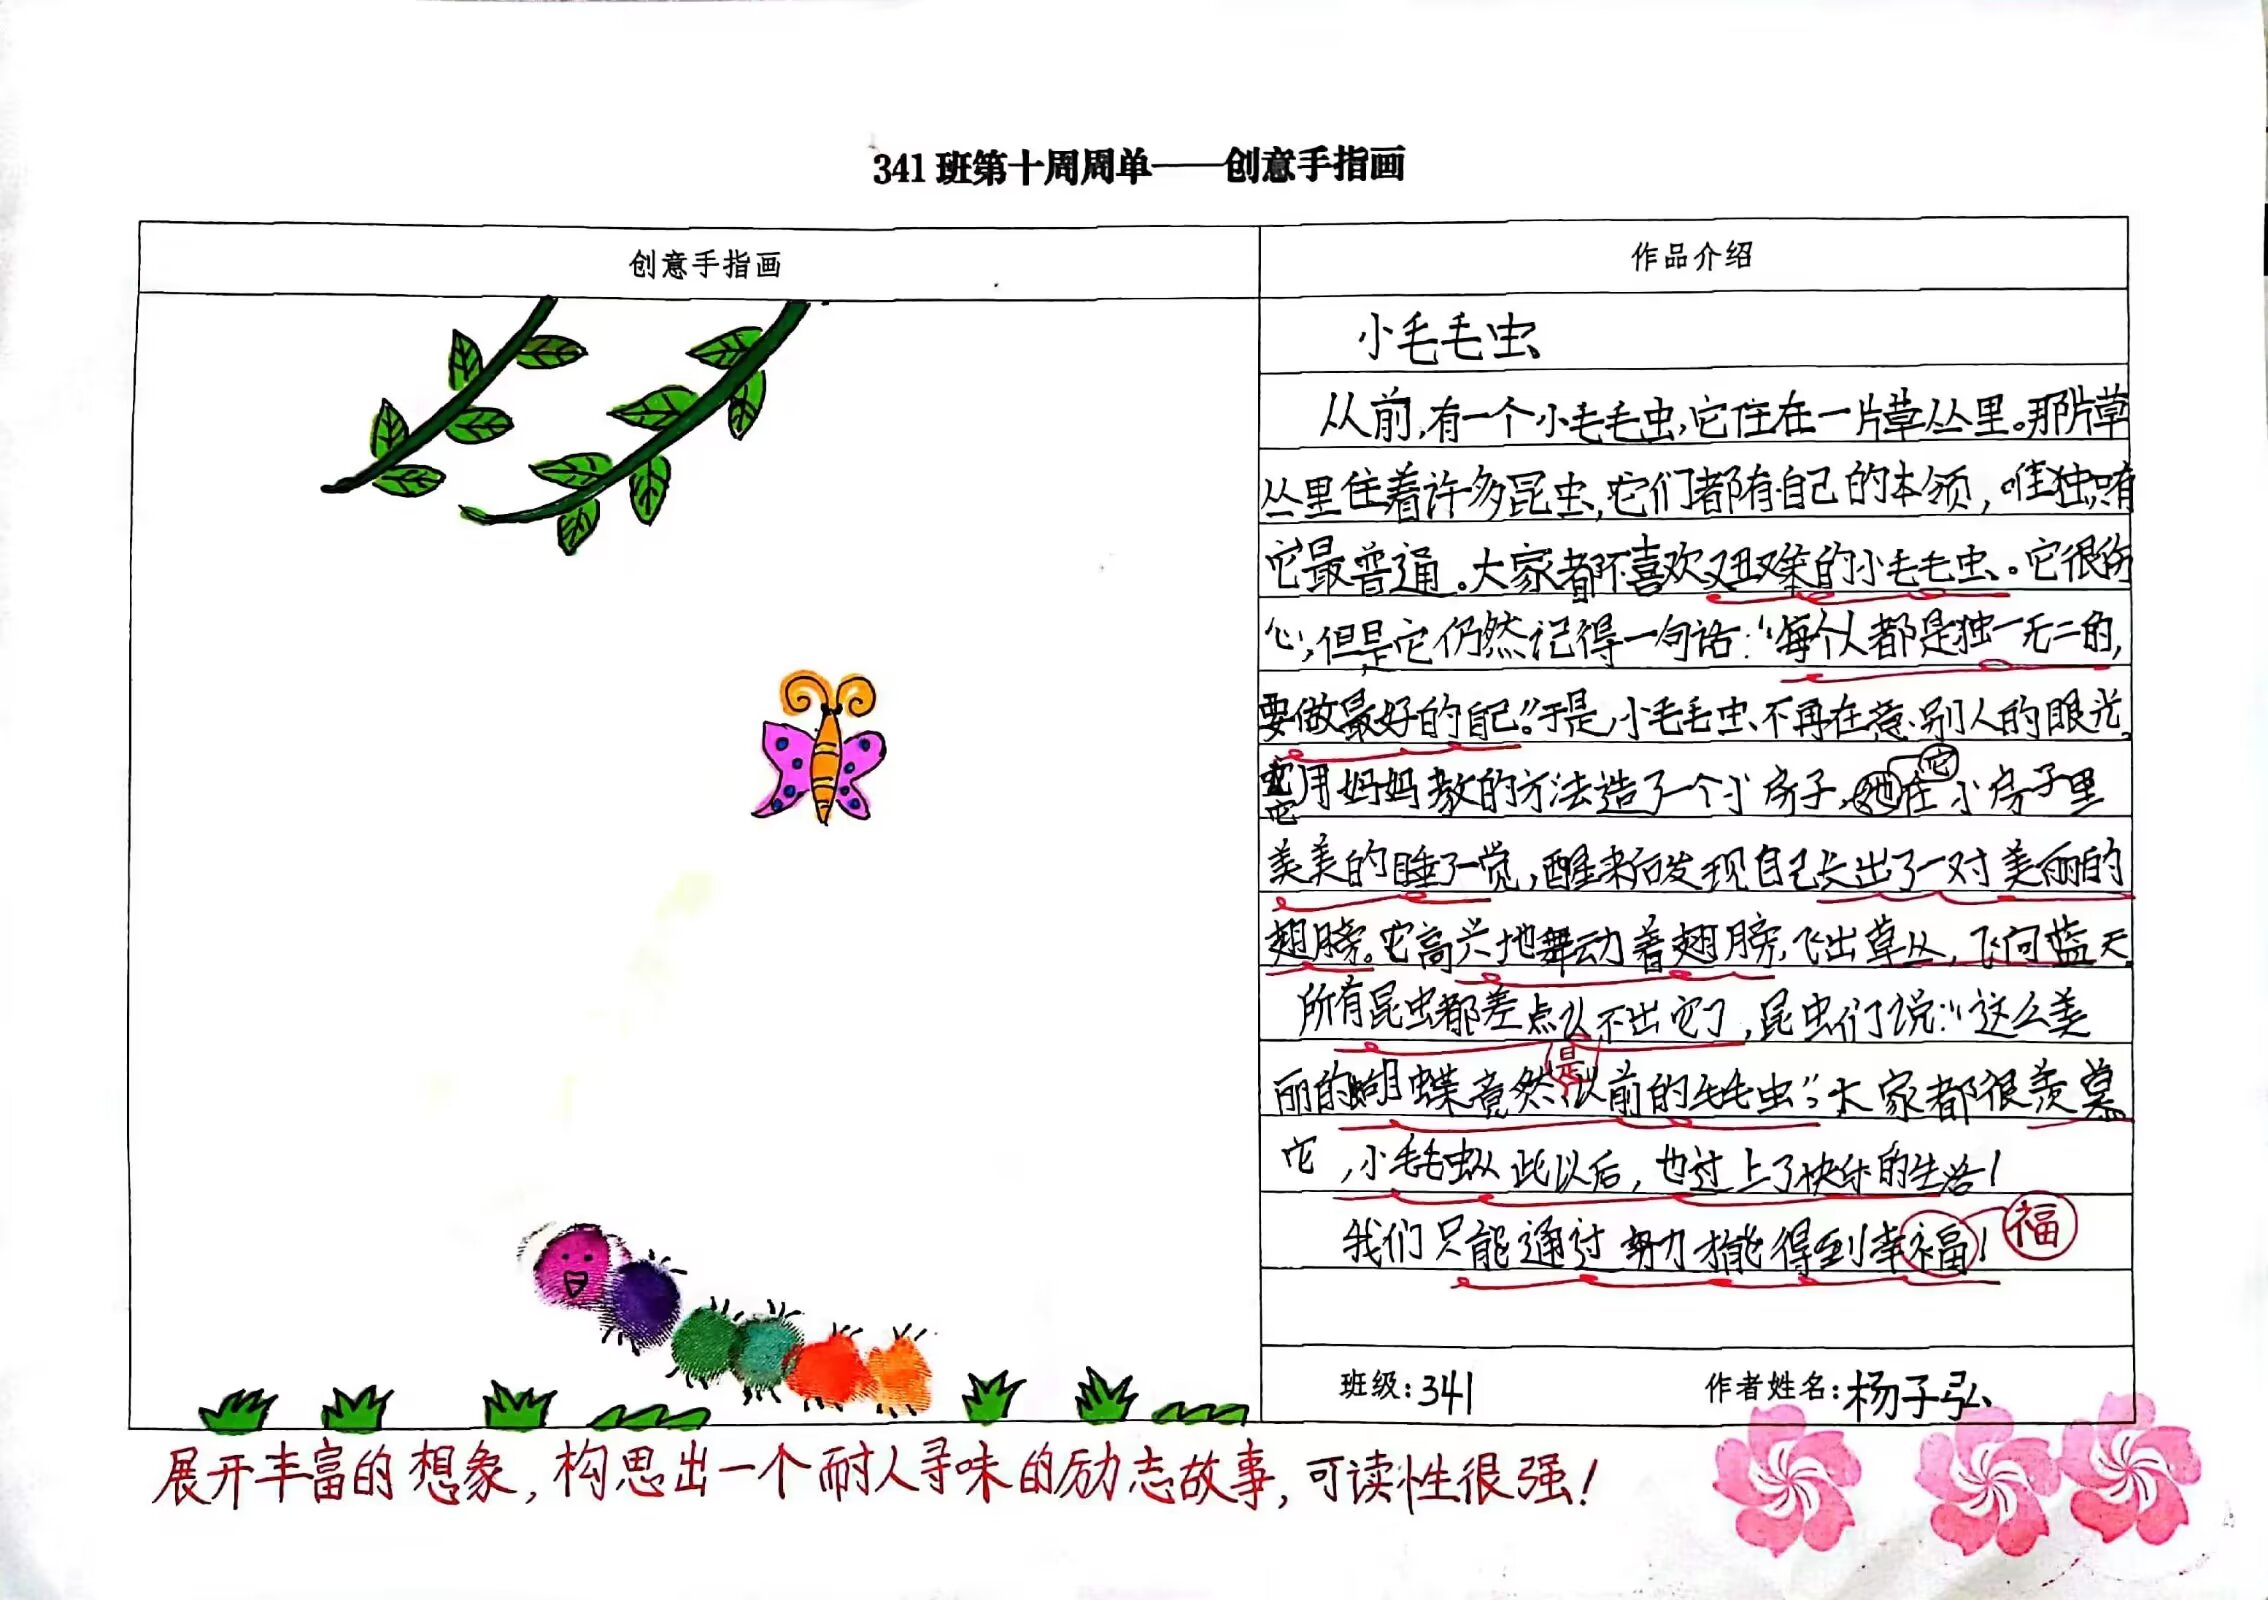 341班第十周周单——创意手指画
创意手指画
作品介绍
小毛毛虫
从前,有一个小毛毛虫,它住在一片草丛里。那片草
丛里住着许多昆虫,它们都有自己的本领,唯独有
它最普通。大家都不喜欢又丑又笨的小毛毛虫。它很伤
心,但是它仍然记得一句话:“每个人都是独一无二的,
要做最好的自己。”于是小毛毛虫不再在意别人的眼光,
它用妈妈教的方法造了一个小房子,她它在小房子里
美美的睡了一觉,醒来后发现自己长出了一对美丽的
翅膀。它高兴地舞动着翅膀,飞出草丛,飞向蓝天。
所有昆虫都差点认不出它了,昆虫们说:“这么美
丽的蝴蝶竟然是以前的毛毛虫”,大家都很羡慕
它,小毛毛虫从此以后,也过上了快乐的生活!
我们只能通过努力才能得到幸福! 福
班级:341 作者姓名:杨子弘
展开丰富的想象,构思出一个耐人寻味的励志故事,可读性很强!